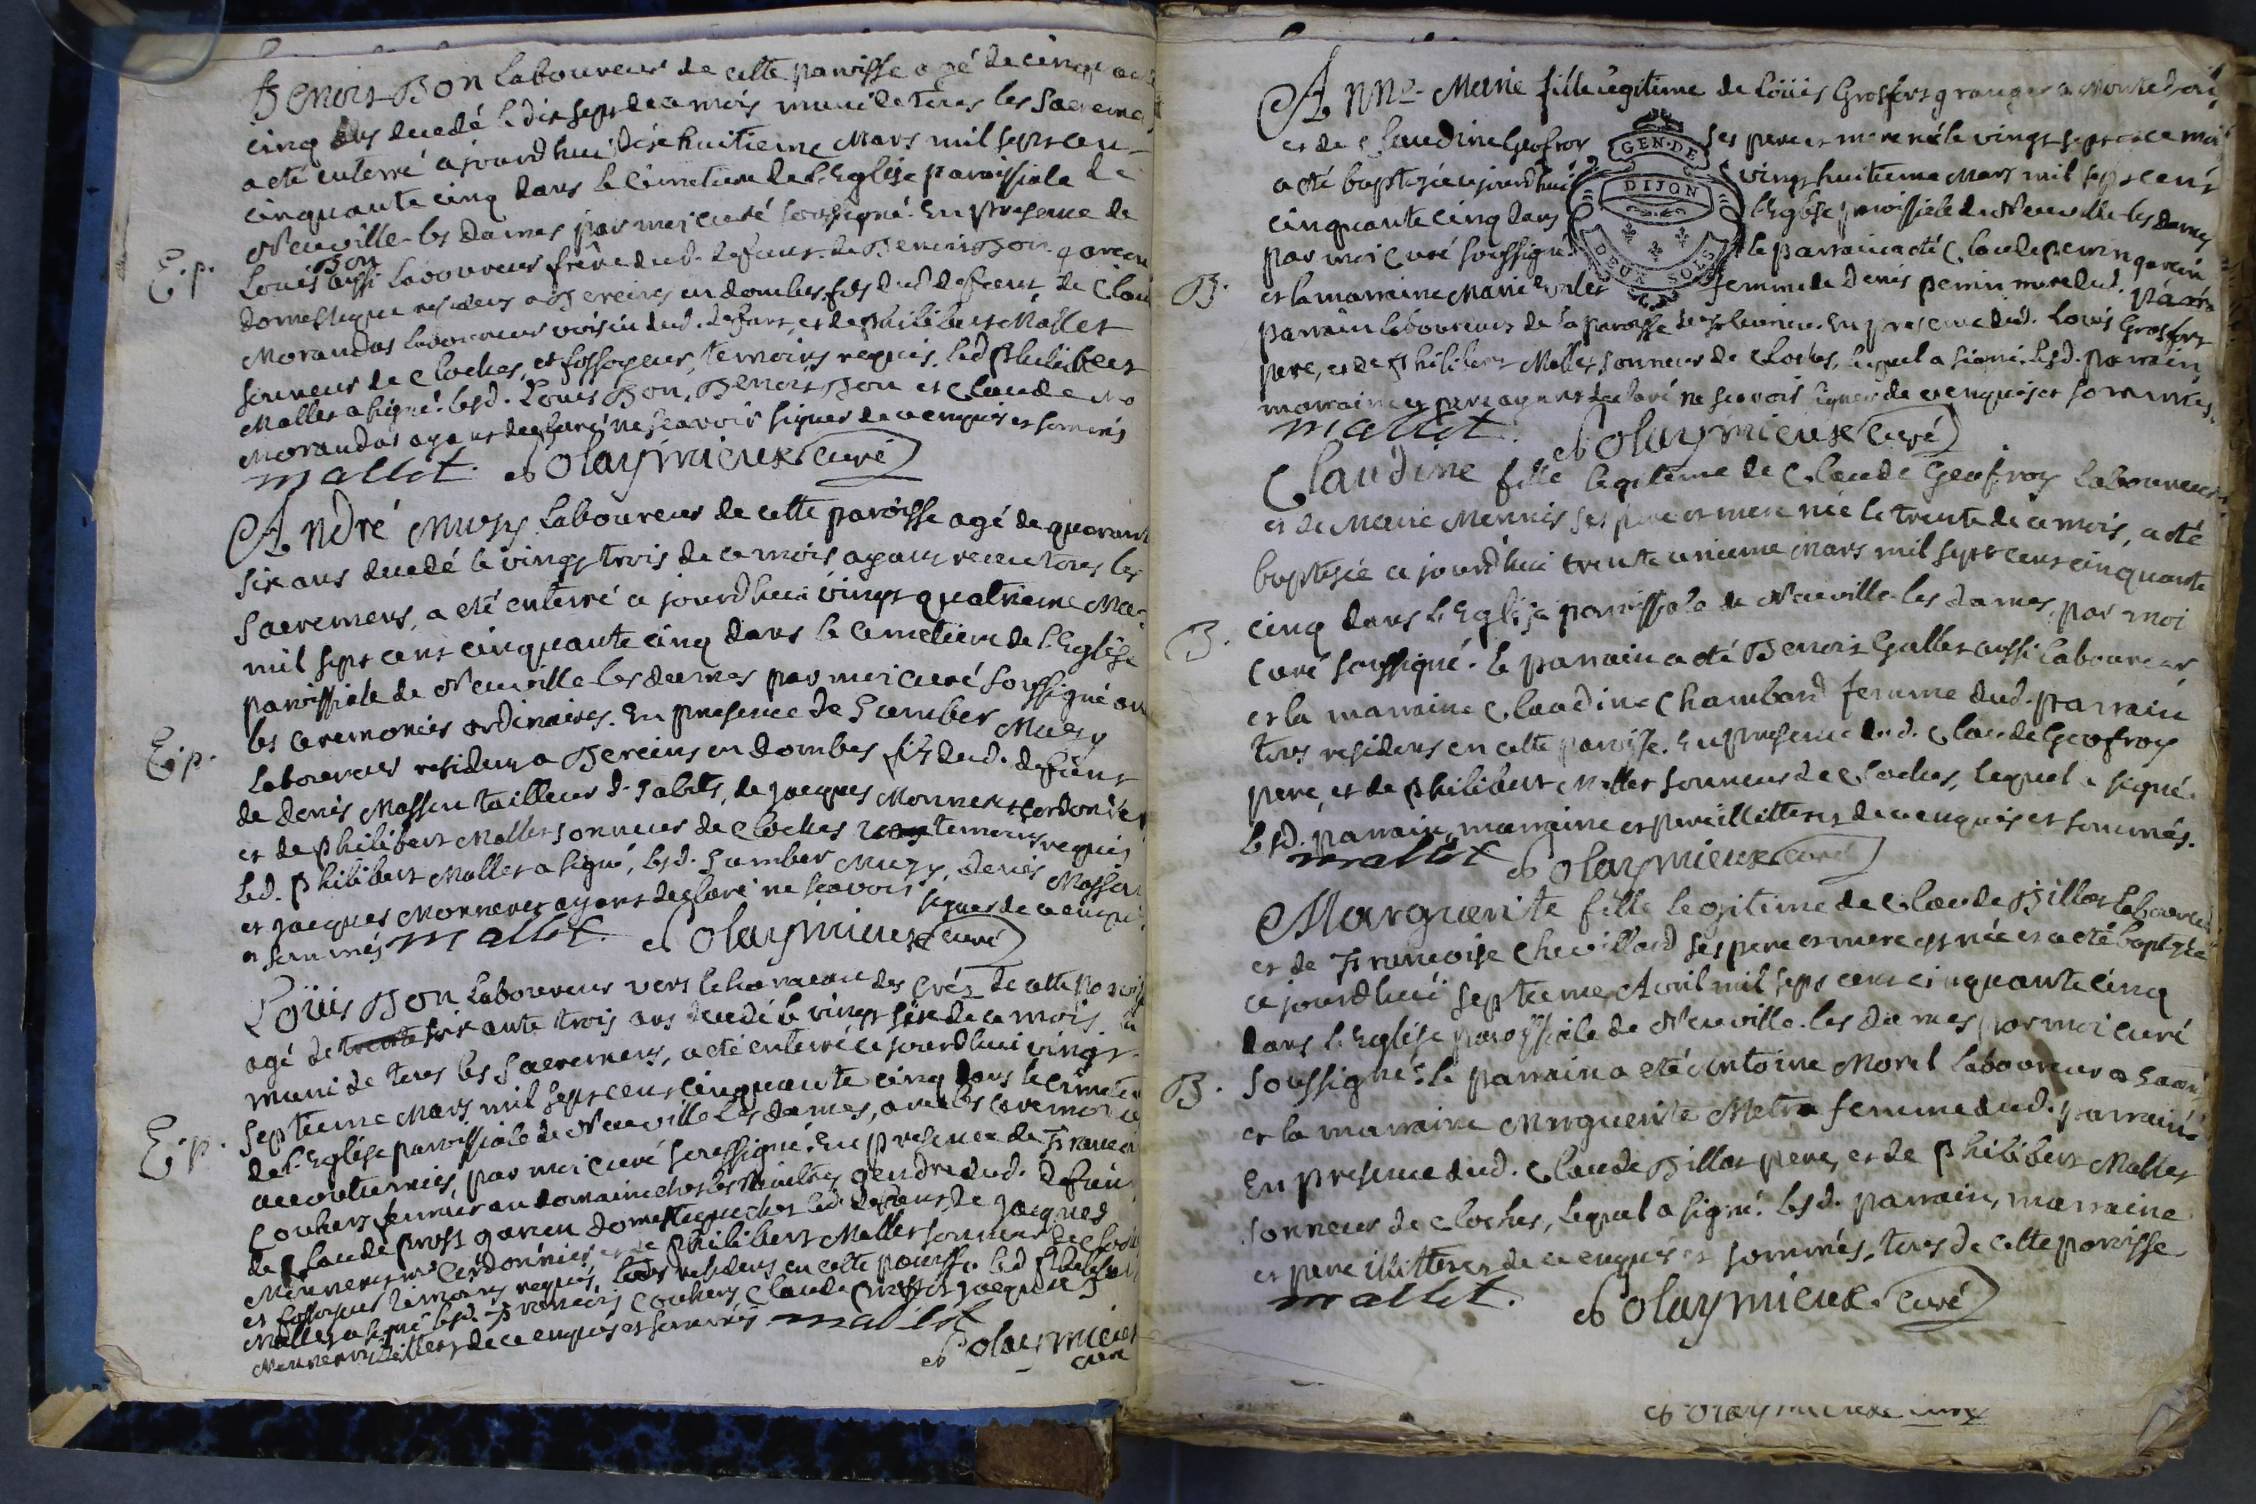 Benoit Bon laboureur de cette paroisse agé de cinquante
cinq ans decedé le dix sept de ce mois muni de tous les Sacremens
a eté enterré ajourdhui dixhuitieme Mars mil sept cens
cinquante cinq dans le cimetiere de l'Eglise paroissiale de
Neuville-les dames par moi curé soussigné. En presence de
Bon
Louis aussi laboureur frere dud. defunt de Benoit Bon garçon
domestique residens a Bereins en dombes fils dud defunt, de Claude
Morandas laboureur voisin dud. defunt, et de Philibert Mallet
sonneur de cloches, et fossoyeur, temoins requis. led Philibert
E. p.
Mallet a signé. lesd. Louis Bon, Benoit Bon et Claude
Morandas ayant declaré ne sçavoir signer de ce enquis et sommés
mallet. Polaymieux curé
André Muzy laboureur de cette paroisse agé de quarante
six ans decedé le vingt trois de ce mois ayant receu tous les
Sacremens, a eté enterré ce jourdhui vingt quatrieme Mars
mil sept cens cinquante cinq dans le cemetiere de l'Eglise
paroissiale de Neuville-les dames par moi curé soussigné avec
les ceremonies ordinaires. En presence de Humber Muzy
E. p.
laboureur residens a Bereins en dombes fils dud. defunt
de denis Masson tailleur d'habits, de jacques Monneret cordonier
et de Philibert Mallet sonneur de cloches temoins requis
led. Philibert Mallet a signé, lesd. Humber Muzy, denis Masson
et jacques Monneret ayant declaré ne sçavoir signer de ce enquis
et sommés mallet. Polaymieux curé
Loüis Bon laboureur vers le hameau des Créz de cette paroisse
agé de soixante trois ans decedé le vingt six de ce mois
muni de tous les Sacremens, a eté enterré ce jourdhui vingt
septieme Mars mil sept cens cinquante cinq dans le cimetiere
E. p.
de l'Eglise paroissiale de Neuville les dames, avec les ceremonies
accoutumées, par moi curé soussigné. En presence de François
Couhers fermier au domaine gendre dud. defunt
de Claude prost garçon domestique chez led. defunt, de jacques
Monneret cordonnier, et de Philibert Mallet sonneur de cloches
et fossoyeur temoins requis, tous residens en cette paroisse led Philibert
Mallet a signé lesd. François Couhers Claude prost et jacques
Monneret illitterés de ce enquis et sommés mallet
Polaymieux
curé
Anne-Marie fille legitime de Loüis Grosfort granger a
et de Claudine Geofroy ses pere et mere née le vingt sept de ce mois
a eté baptisée ajourdhui vingt huitieme Mars mil sept cens
cinquante cinq dans l'Eglise paroissiale de Neuville-les dames
par moi Curé soussigné. le parrain a eté Claude perrin garçon
B.
et la marraine Marie femme de Denis perrin mere dud. parrain
parrain laboureur de la paroisse En presence dud. Loüis Grosfort
pere, et de Philibert Mallet sonneur de cloches, lequel a signé. lesd. parrain
marraine et pere ayant declaré ne sçavoir signer de ce enquis et sommés.
mallet. Polaymieux curé
GEN. DE
DIJON
DEUX SOLS
Claudine fille legitime de Claude Geofroy laboureur
et de Marie Monnis ses pere et mere née le trente de ce mois, a eté
baptisée ce jourdhui trente unieme Mars mil sept cens cinquante
cinq dans l'Eglise paroissiale de Neuville-les dames, par moi
B.
Curé soussigné. le parrain a eté Benoit Gallet aussi laboureur
et la marraine Claudine Chambard femme dud. parrain
tous residens en cette paroisse. En presence dud. Claude Geofroy
pere, et de Philibert Mallet sonneur de cloches, lequel a signé.
lesd. parrain, marraine et pere illitterés de ce enquis et sommés.
mallet Polaymieux curé
Marguerite fille legitime de Claude Billot laboureur
et de Françoise Chevillard ses pere et mere est née et a eté baptisée
ce jourdhui septieme Avril mil sept cens cinquante cinq
dans l'Eglise paroissiale de Neuville-les dames par moi curé
B.
soussigné. le parrain a eté Antoine Morel laboureur
et la marraine Marguerite Metra femme dud. parrain
En presence dud. Claude Billot pere, et de Philibert Mallet
sonneur de cloches, lequel a signé. lesd. parrain, marraine
et pere illitterés de ce enquis et sommés, tous de cette paroisse
mallet. Polaymieux. Curé
Polaymieux curé